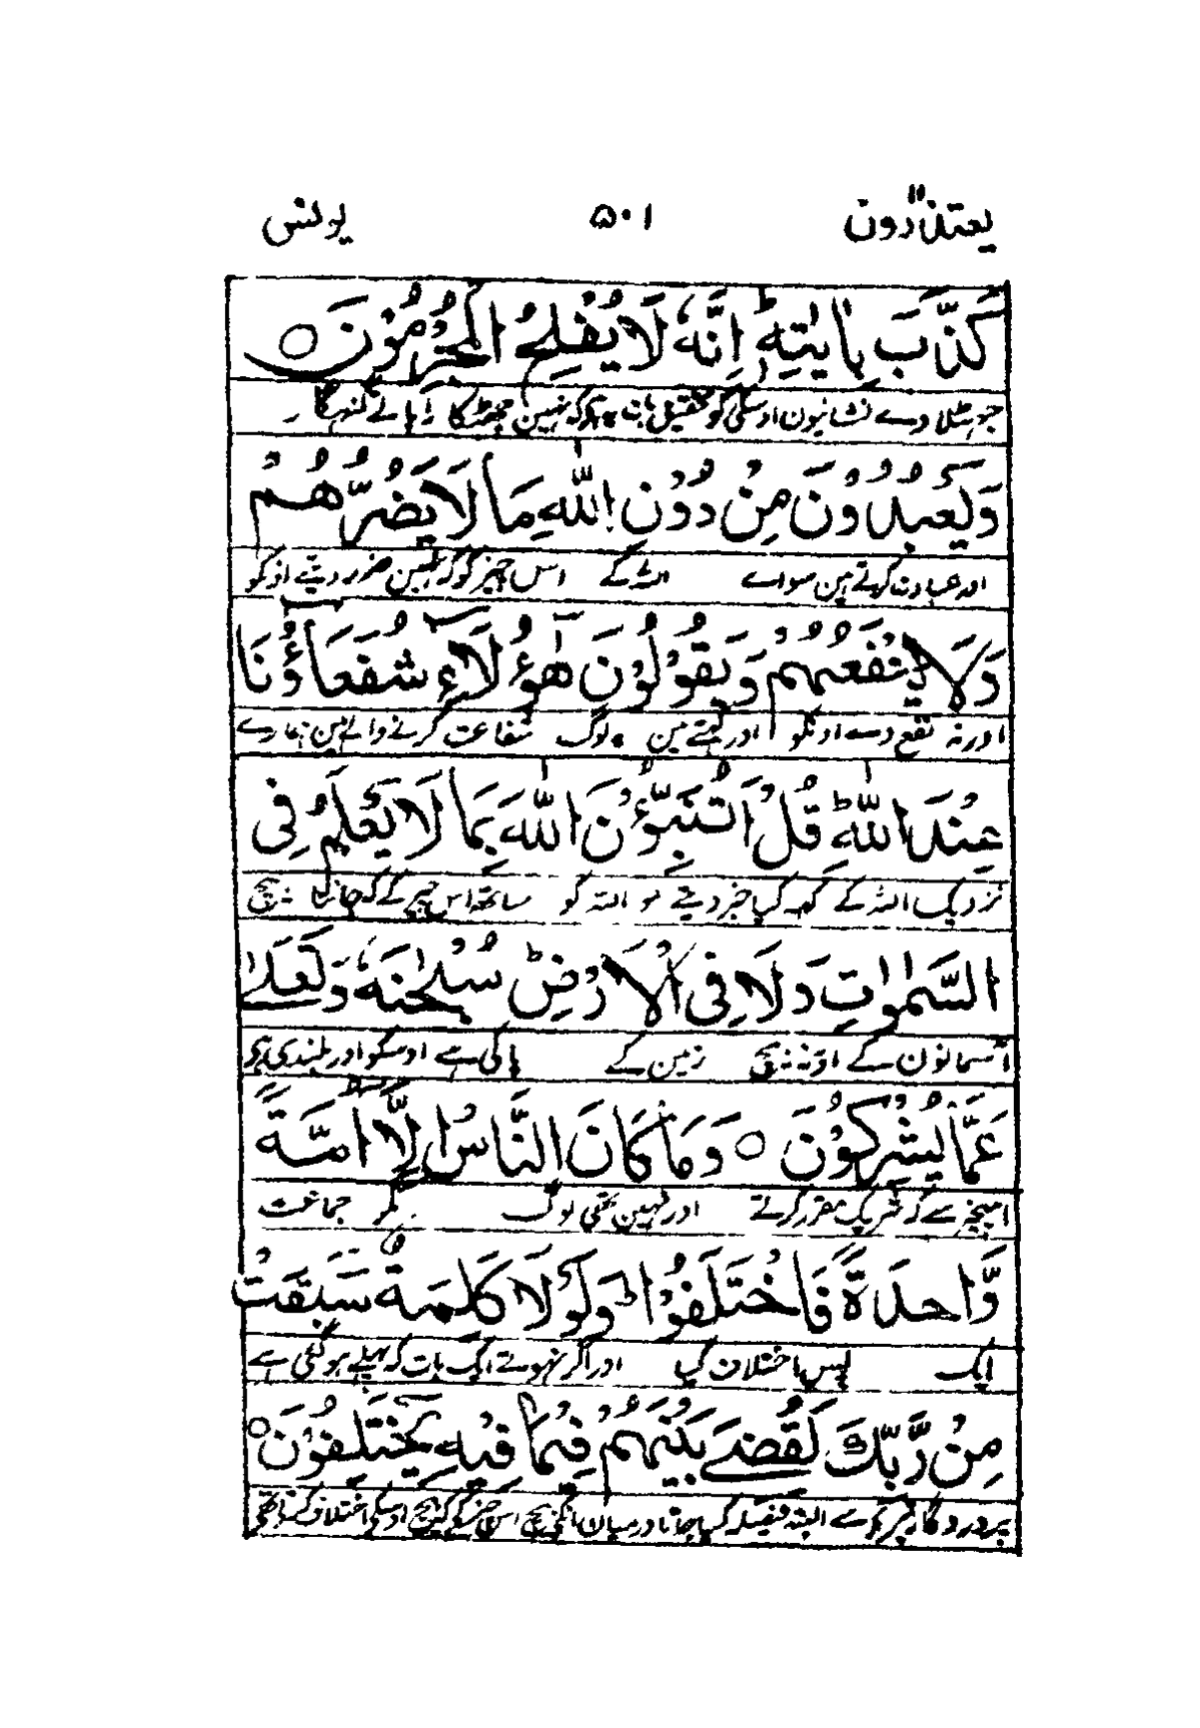 یعتذرون ۱۱ ۵۰۱ یونس
كَذَّبَ بِاٰيٰتِهٖ ؕ اِنَّهٗ لَا يُفْلِحُ الْمُجْرِمُوْنَ ○
جہٹلا دے نشانیون اوسکی کو تحقیق بات یہ ہے کہ نہین چھٹکارا پاتے گنہگار
وَيَعْبُدُوْنَ مِنْ دُوْنِ اللّٰهِ مَا لَا يَضُرُّهُمْ
اور عبادت کرتے ہین سواے اللہ کے اس چیز کو کہ نہین ضرر دیتے اونکو
وَلَا يَنْفَعُهُمْ وَيَقُوْلُوْنَ هٰٓؤُلَآءِ شُفَعَآؤُنَا
اور نہ نفع دے اونکو اور کہتے ہین یہ لوگ شفاعت کرنے والے ہین ہمارے
عِنْدَ اللّٰهِ ؕ قُلْ اَتُنَبِّـُٔوْنَ اللّٰهَ بِمَا لَا يَعْلَمُ فِى
نزدیک اللہ کے کہہ کیا خبر دیتے ہو اللہ کو ساتھ اس چیز کے کہ نہ بیچ
السَّمٰوٰتِ وَلَا فِى الْاَرْضِ ؕ سُبْحٰنَهٗ وَتَعٰلٰى
آسمانون کے اور نہ بیچ زمین کے پاکی ہے اوسکو اور بلندی ہے
عَمَّا يُشْرِكُوْنَ ○ وَمَا كَانَ النَّاسُ اِلَّآ اُمَّةً
اس چیز سے کہ شریک مقرر کرتے اور نہین تھی لوگ مگر جماعت
وَّاحِدَةً فَاخْتَلَفُوْا ؕ وَلَوْلَا كَلِمَةٌ سَبَقَتْ
ایک پس اختلاف کیا اور اگر نہوتے ایک بات کہ پہلے ہو گئی ہے
مِنْ رَّبِّكَ لَقُضِىَ بَيْنَهُمْ فِيْمَا فِيْهِ يَخْتَلِفُوْنَ ○
پروردگار تیرے سے البتہ فیصلہ کیا جاتا درمیان انکی بیچ اس چیز کے کہ بیچ اوسکی اختلاف کرتے تھی